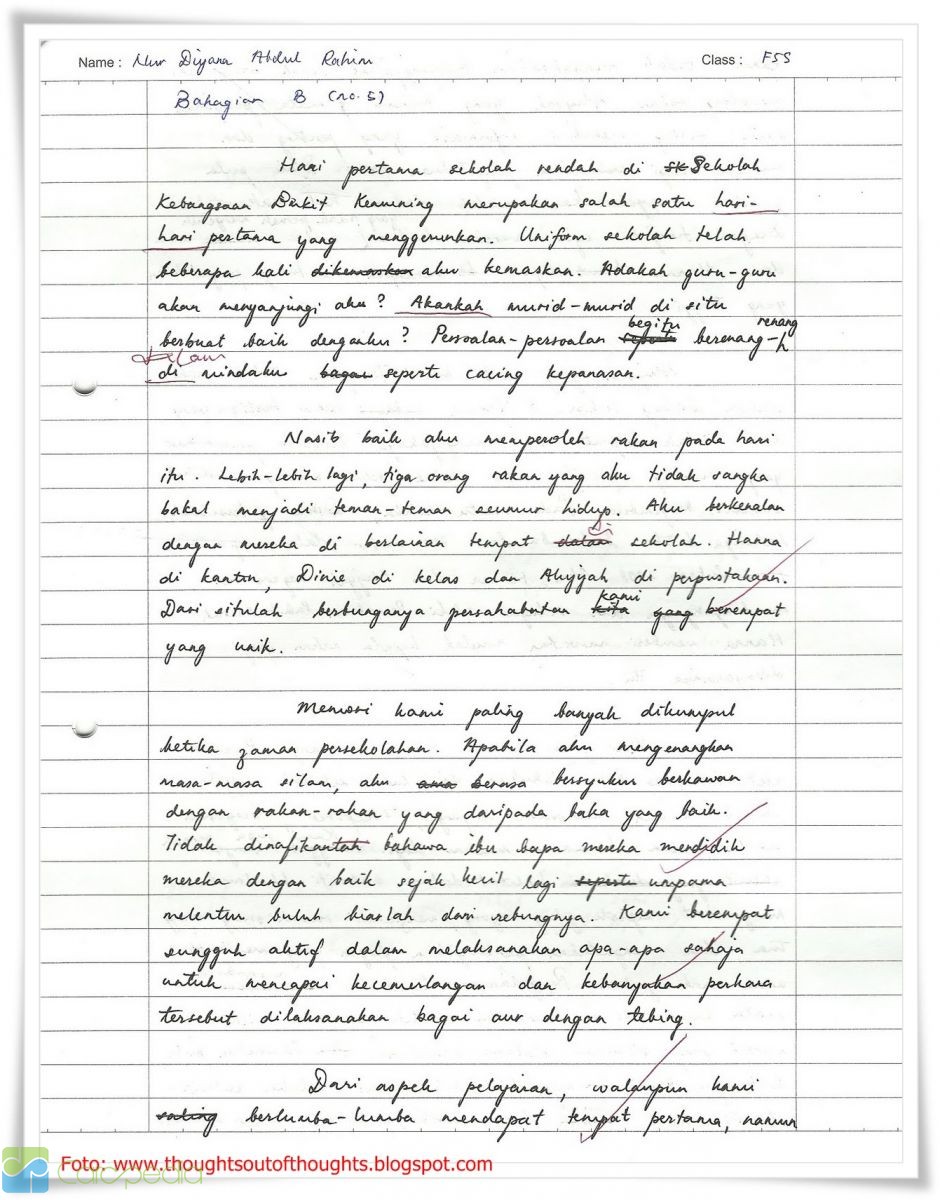 Name : Nur Diyana Abdul Rahim Class : F5S
Bahagian B (no. 5)
Hari pertama sekolah rendah di sk Sekolah
Kebangsaan Bukit Kemuning merupakan salah satu hari-
hari pertama yang menggerunkan. Uniform sekolah telah
beberapa kali dikemaskan aku kemaskan. Adakah guru-guru
akan menyanjungi aku? Akankah murid-murid di situ
begitu renang
berbuat baik denganku? Persoalan-persoalan seperti berenang-
dalam
di mindaku bagai seperti cacing kepanasan.
Nasib baik aku memperoleh rakan pada hari
itu. Lebih-lebih lagi, tiga orang rakan yang aku tidak sangka
bakal menjadi teman-teman seumur hidup. Aku berkenalan
di
dengan mereka di berlainan tempat dalam sekolah. Hanna
di kantin, Dinie di kelas dan Aliyyah di perpustakaan.
kami
Dari situlah berbunganya persahabatan kita yang berempat
yang unik.
Memori kami paling banyak dikumpul
ketika zaman persekolahan. Apabila aku mengenangkan
masa-masa silam, aku ama berasa bersyukur berkawan
dengan rakan-rakan yang daripada baka yang baik.
Tidak dinafikantah bahawa ibu bapa mereka mendidik
mereka dengan baik sejak kecil lagi seperti umpama
melentur buluh biarlah dari rebungnya. Kami berempat
sungguh aktif dalam melaksanakan apa-apa sahaja
untuk mencapai kecemerlangan dan kebanyakan perkara
tersebut dilaksanakan bagai aur dengan tebing.
Dari aspek pelajaran, walaupun kami
saling berlumba-lumba mendapat tempat pertama, namun
Foto: www.thoughtsoutofthoughts.blogspot.com
Caripedia